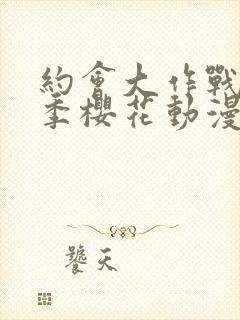 約會大作戰
季櫻花動漫
饕天